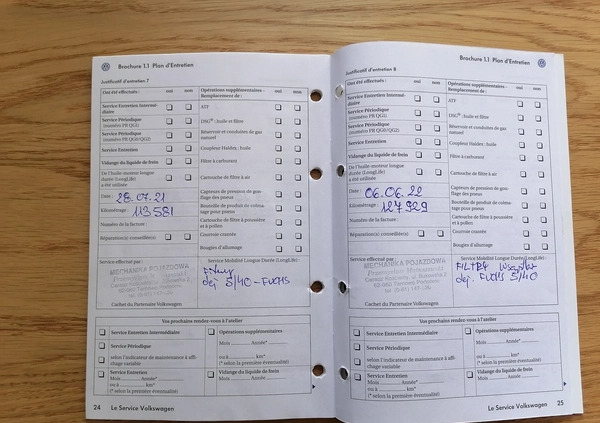 Brochure 1.1 Plan d'Entretien
Justificatif d'entretien 7
Ont été effectués : oui non
Opérations supplémentaires - oui non
Remplacement de :
Service Entretien Intermé-
diaire
Service Périodique
(numéro PR QG1)
Service Périodique
(numéro PR QG0/QG2)
Service Entretien
Vidange du liquide de frein
De l'huile-moteur longue
durée (LongLife)
a été utilisée
ATF
DSG® : huile et filtre
Réservoir et conduites de gaz
naturel
Coupleur Haldex : huile
Filtre à carburant
Cartouche de filtre à air
Date : 28.07.21
Kilométrage : 113 581
Numéro de la facture :
Réparation(s) conseillée(s)
Capteurs de pression de gon-
flage des pneus
Bouteille de produit de colma-
tage pour pneus
Cartouche de filtre à poussière
et à pollen
Courroie crantée
Bougies d'allumage
Service effectué par :
MECHANIKA POJAZDOWA
Cachet du Partenaire Volkswagen
Service Mobilité Longue Durée (LongLife) :
5/40 - FUCHS
Vos prochains rendez-vous à l'atelier
Service Entretien Intermédiaire
Service Périodique
selon l'indicateur de maintenance à affi-
chage variable
Service Entretien
Mois Année*
ou à km*
(* selon la première éventualité)
Opérations supplémentaires
Mois Année*
ou à km*
(* selon la première éventualité)
Vidange du liquide de frein
Mois Année
24 Le Service Volkswagen
Brochure 1.1 Plan d'Entretien
Justificatif d'entretien 8
Ont été effectués : oui non
Opérations supplémentaires - oui non
Remplacement de :
Service Entretien Intermé-
diaire
Service Périodique
(numéro PR QG1)
Service Périodique
(numéro PR QG0/QG2)
Service Entretien
Vidange du liquide de frein
De l'huile-moteur longue
durée (LongLife)
a été utilisée
ATF
DSG® : huile et filtre
Réservoir et conduites de gaz
naturel
Coupleur Haldex : huile
Filtre à carburant
Cartouche de filtre à air
Date : 06.06.22
Kilométrage : 127 329
Numéro de la facture :
Réparation(s) conseillée(s)
Capteurs de pression de gon-
flage des pneus
Bouteille de produit de colma-
tage pour pneus
Cartouche de filtre à poussière
et à pollen
Courroie crantée
Bougies d'allumage
Service effectué par :
MECHANIKA POJAZDOWA
Cachet du Partenaire Volkswagen
Service Mobilité Longue Durée (LongLife) :
FUCHS 5/40
Vos prochains rendez-vous à l'atelier
Service Entretien Intermédiaire
Service Périodique
selon l'indicateur de maintenance à affi-
chage variable
Service Entretien
Mois Année*
ou à km*
(* selon la première éventualité)
Opérations supplémentaires
Mois Année*
ou à km*
(* selon la première éventualité)
Vidange du liquide de frein
Mois Année
Le Service Volkswagen 25